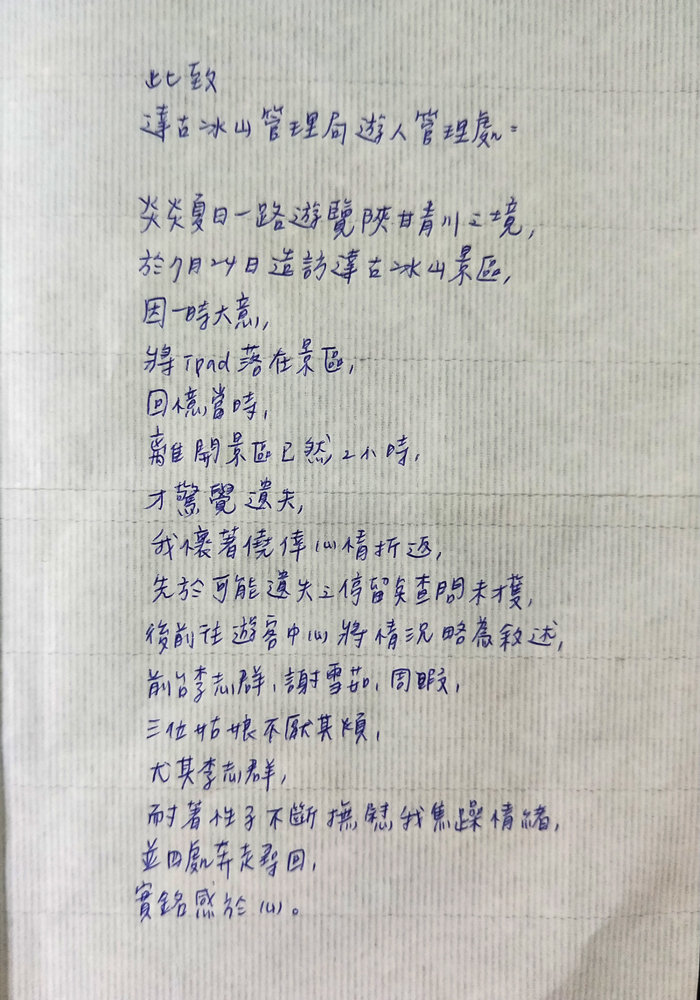 此致
達古冰山管理局遊人管理處：
炎炎夏日一路遊覽陝甘青川之境，
於7月24日造訪達古冰山景區，
因一時大意，
將ipad落在景區，
回憶當時，
離開景區已然2小時，
才驚覺遺失，
我懷著僥倖心情折返，
先於可能遺失之停留矣查問未獲，
後前往遊客中心將情況略為敘述，
前台李志群，謝雪茹，周暇，
三位姑娘不厭其煩，
尤其李志群，
耐著性子不斷撫慰我焦躁情緒，
並四處奔走尋回，
實銘感於心。